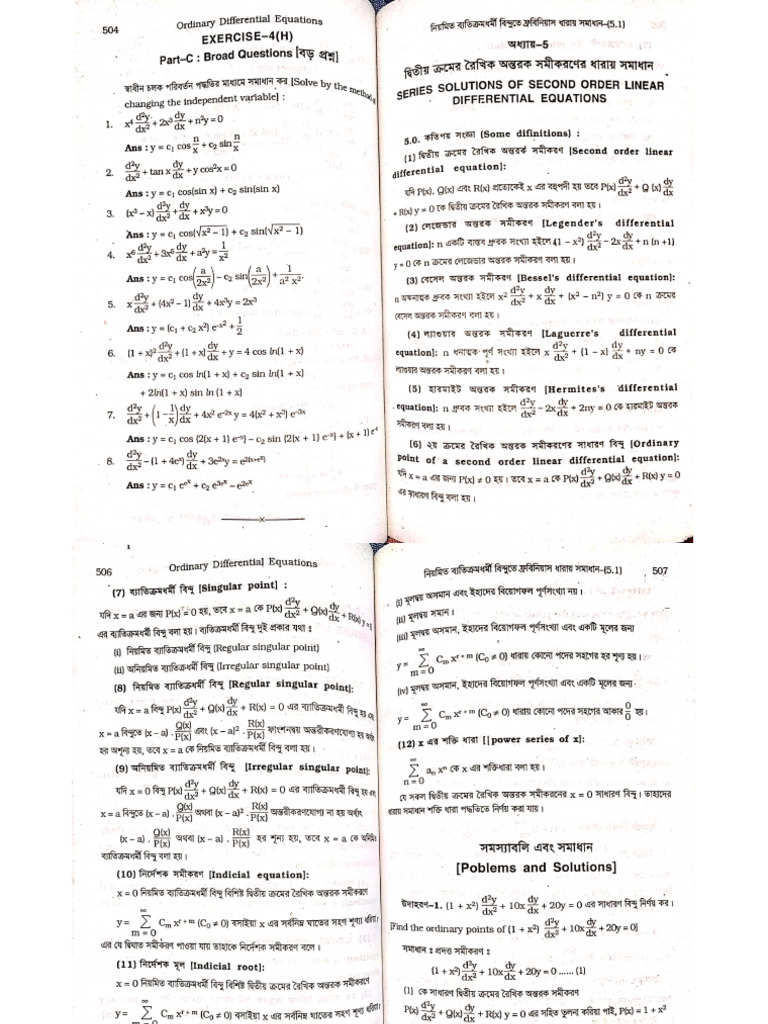 504
Ordinary Differential Equations
EXERCISE–4(H)
Part–C : Broad Questions [বড় প্রশ্ন]
স্বাধীন চলক পরিবর্তন পদ্ধতির মাধ্যমে সমাধান কর [Solve by the method
changing the independent variable] :
1. x⁴ d²y/dx² + 2x³ dy/dx + n²y = 0
Ans : y = c₁ cos n/x + c₂ sin n/x
2. d²y/dx² + tan x dy/dx + y cos²x = 0
Ans : y = c₁ cos(sin x) + c₂ sin(sin x)
3. (x³ – x) d²y/dx² + dy/dx + x³y = 0
Ans : y = c₁ cos(√x² – 1) + c₂ sin(√x² – 1)
4. x⁶ d²y/dx² + 3x⁵ dy/dx + a²y = 1/x²
Ans : y = c₁ cos(a/2x²) – c₂ sin(a/2x²) + 1/a² x²
5. x d²y/dx² + (4x² – 1) dy/dx + 4x³y = 2x³
Ans : y = (c₁ + c₂ x²) e^-x² + 1/2
6. (1 + x)² d²y/dx² + (1 + x) dy/dx + y = 4 cos ln(1 + x)
Ans : y = c₁ cos ln(1 + x) + c₂ sin ln(1 + x)
+ 2ln(1 + x) sin ln (1 + x)
7. d²y/dx² + (1 – 1/x) dy/dx + 4x² e^-2x y = 4(x² + x³) e^-3x
Ans : y = c₁ cos {2(x + 1) e^-x} – c₂ sin {2(x + 1) e^-x} + (x + 1) e^-x
8. d²y/dx² – (1 + 4eˣ) dy/dx + 3e^2x y = e^2(x+eˣ)
Ans : y = c₁ e^eˣ + c₂ e^3eˣ – e^2eˣ
নিয়মিত ব্যতিক্রমধর্মী বিন্দুতে ফ্রবিনিয়াস ধারায় সমাধান–(5.1)
অধ্যায়–5
দ্বিতীয় ক্রমের রৈখিক অন্তরক সমীকরণের ধারায় সমাধান
SERIES SOLUTIONS OF SECOND ORDER LINEAR
DIFFERENTIAL EQUATIONS
5.0. কতিপয় সংজ্ঞা (Some difinitions) :
(1) দ্বিতীয় ক্রমের রৈখিক অন্তরক সমীকরণ [Second order linear
differential equation]:
যদি P(x). Q(x) এবং R(x) প্রত্যেকেই x এর বহুপদী হয় তবে P(x) d²y/dx² + Q (x) dy/dx
+ R(x) y = 0 কে দ্বিতীয় ক্রমের রৈখিক অন্তরক সমীকরণ বলা হয়।
(2) লেজেন্ডার অন্তরক সমীকরণ [Legender's differential
equation]: n একটি বাস্তব ধ্রুবক সংখ্যা হইলে (1 – x²) d²y/dx² – 2x dy/dx + n (n +1)
y = 0 কে n ক্রমের লেজেন্ডার অন্তরক সমীকরণ বলা হয়।
(3) বেসেল অন্তরক সমীকরণ [Bessel's differential equation]:
n অঋনাত্মক ধ্রুবক সংখ্যা হইলে x² d²y/dx² + x dy/dx + (x² – n²) y = 0 কে n ক্রমের
বেসেল অন্তরক সমীকরণ বলা হয়।
(4) ল্যাগুয়ার অন্তরক সমীকরণ [Laguerre's differential
equation]: n ধনাত্মক পূর্ণ সংখ্যা হইলে x d²y/dx² + (1 - x) dy/dx + ny = 0 কে
লাগুয়ার অন্তরক সমীকরণ বলা হয়।
(5) হারমাইট অন্তরক সমীকরণ [Hermites's differential
equation]: n ধ্রুবক সংখ্যা হইলে d²y/dx² – 2x dy/dx + 2ny = 0 কে হারমাইট অন্তরক
সমীকরণ বলা হয়।
(6) ২য় ক্রমের রৈখিক অন্তরক সমীকরণের সাধারণ বিন্দু [Ordinary
point of a second order linear differential equation]:
যদি x = a এর জন্য P(x) ≠ 0 হয়। তবে x = a কে P(x) d²y/dx² + Q(x) dy/dx + R(x) y = 0
এর সাধারণ বিন্দু বলা হয়।
506
Ordinary Differential Equations
(7) ব্যাতিক্রমধর্মী বিন্দু [Singular point] :
যদি x = a এর জন্য P(x) = 0 হয়, তবে x = a কে P(x) d²y/dx² + Q(x) dy/dx + R(x) y = 0
এর ব্যাতিক্রমধর্মী বিন্দু বলা হয়। ব্যতিক্রম ধর্মী বিন্দু দুই প্রকার যথা :
(i) নিয়মিত ব্যাতিক্রমধর্মী বিন্দু (Regular singular point)
(ii) অনিয়মিত ব্যাতিক্রমধর্মী বিন্দু (Irregular singular point)
(8) নিয়মিত ব্যাতিক্রমধর্মী বিন্দু [Regular singular point]:
যদি x = a বিন্দু P(x) d²y/dx² + Q(x) dy/dx + R(x) = 0 এর ব্যাতিক্রমধর্মী বিন্দু হয় এবং
x = a বিন্দুতে (x – a) · Q(x)/P(x) এবং (x – a)² · R(x)/P(x) ফাংশনদ্বয় অন্তরীকরণযোগ্য হয় অর্থাৎ
হর শূন্য হয়, তবে x = a কে নিয়মিত ব্যাতিক্রমধর্মী বিন্দু বলা হয়।
(9) অনিয়মিত ব্যাতিক্রমধর্মী বিন্দু [Irregular singular point]:
যদি x = 0 বিন্দু P(x) d²y/dx² + Q(x) dy/dx + R(x) = 0 এর ব্যাতিক্রমধর্মী বিন্দু হয় এবং
x = a বিন্দুতে (x – a) · Q(x)/P(x) অথবা (x – a)² · R(x)/P(x) অন্তরীকরণযোগ্য না হয় অর্থাৎ
(x – a) · Q(x)/P(x) অথবা (x – a) · R(x)/P(x) হর শূন্য হয়, তবে x = a কে অনিয়মিত
ব্যাতিক্রমধর্মী বিন্দু বলা হয়।
(10) নির্দেশক সমীকরণ [Indicial equation]:
x = 0 নিয়মিত ব্যাতিক্রমধর্মী বিন্দু বিশিষ্ট দ্বিতীয় ক্রমের রৈখিক অন্তরক সমীকরণে
y = ∞ Σ m = 0 Cₘ x^r + m (C₀ ≠ 0) বসাইয়া x এর সর্বনিম্ন ঘাতের সহগ শূন্য ধরিয়া r
এর যে দ্বিঘাত সমীকরণ পাওয়া যায় তাহাকে নির্দেশক সমীকরণ বলে।
(11) নির্দেশক মূল [Indicial root]:
x = 0 নিয়মিত ব্যাতিক্রমধর্মী বিন্দু বিশিষ্ট দ্বিতীয় ক্রমের রৈখিক অন্তরক সমীকরণে
y = ∞ Σ Cₘ x^r + m (C₀ ≠ 0) বসাইয়া x এর সর্বনিম্ন ঘাতের সহগ শূন্য ধরিয়া
নিয়মিত ব্যাতিক্রমধর্মী বিন্দুতে ফ্রবিনিয়াস ধারায় সমাধান–(5.1)
507
(i) মূলদ্বয় অসমান এবং ইহাদের বিয়োগফল পূর্ণসংখ্যা নয়।
(ii) মূলদ্বয় সমান।
(iii) মূলদ্বয় অসমান, ইহাদের বিয়োগফল পূর্ণসংখ্যা এবং একটি মূলের জন্য
y = ∞ Σ m = 0 Cₘ x^r + m (C₀ ≠ 0) ধারায় কোনো পদের সহগের হর শূন্য হয়।
(iv) মূলদ্বয় অসমান, ইহাদের বিয়োগফল পূর্ণসংখ্যা এবং একটি মূলের জন্য
y = ∞ Σ m = 0 Cₘ x^r + m (C₀ ≠ 0) ধারায় কোনো পদের সহগের আকার 0/0 হয়।
(12) x এর শক্তি ধারা [||power series of x]:
∞ Σ n = 0 aₙ xⁿ কে x এর শক্তিধারা বলা হয়।
যে সকল দ্বিতীয় ক্রমের রৈখিক অন্তরক সমীকরনের x = 0 সাধারণ বিন্দু। তাহাদের
ধারায় সমাধান শক্তি ধারা পদ্ধতিতে নির্ণয় করা যায়।
সমস্যাবলি এবং সমাধান
[Poblems and Solutions]
উদাহরণ–1. (1 + x²) d²y/dx² + 10x dy/dx + 20y = 0 এর সাধারণ বিন্দু নির্ণয় কর।
[Find the ordinary points of (1 + x²) d²y/dx² + 10x dy/dx + 20y = 0]
সমাধান : প্রদত্ত সমীকরণ,
(1 + x²) d²y/dx² + 10x dy/dx + 20y = 0 ...... (1)
(1) কে সাধারণ দ্বিতীয় ক্রমের রৈখিক অন্তরক সমীকরণ
P(x) d²y/dx² + Q(x) dy/dx + R(x) y = 0 এর সহিত তুলনা করিয়া পাই, P(x) = 1 + x²